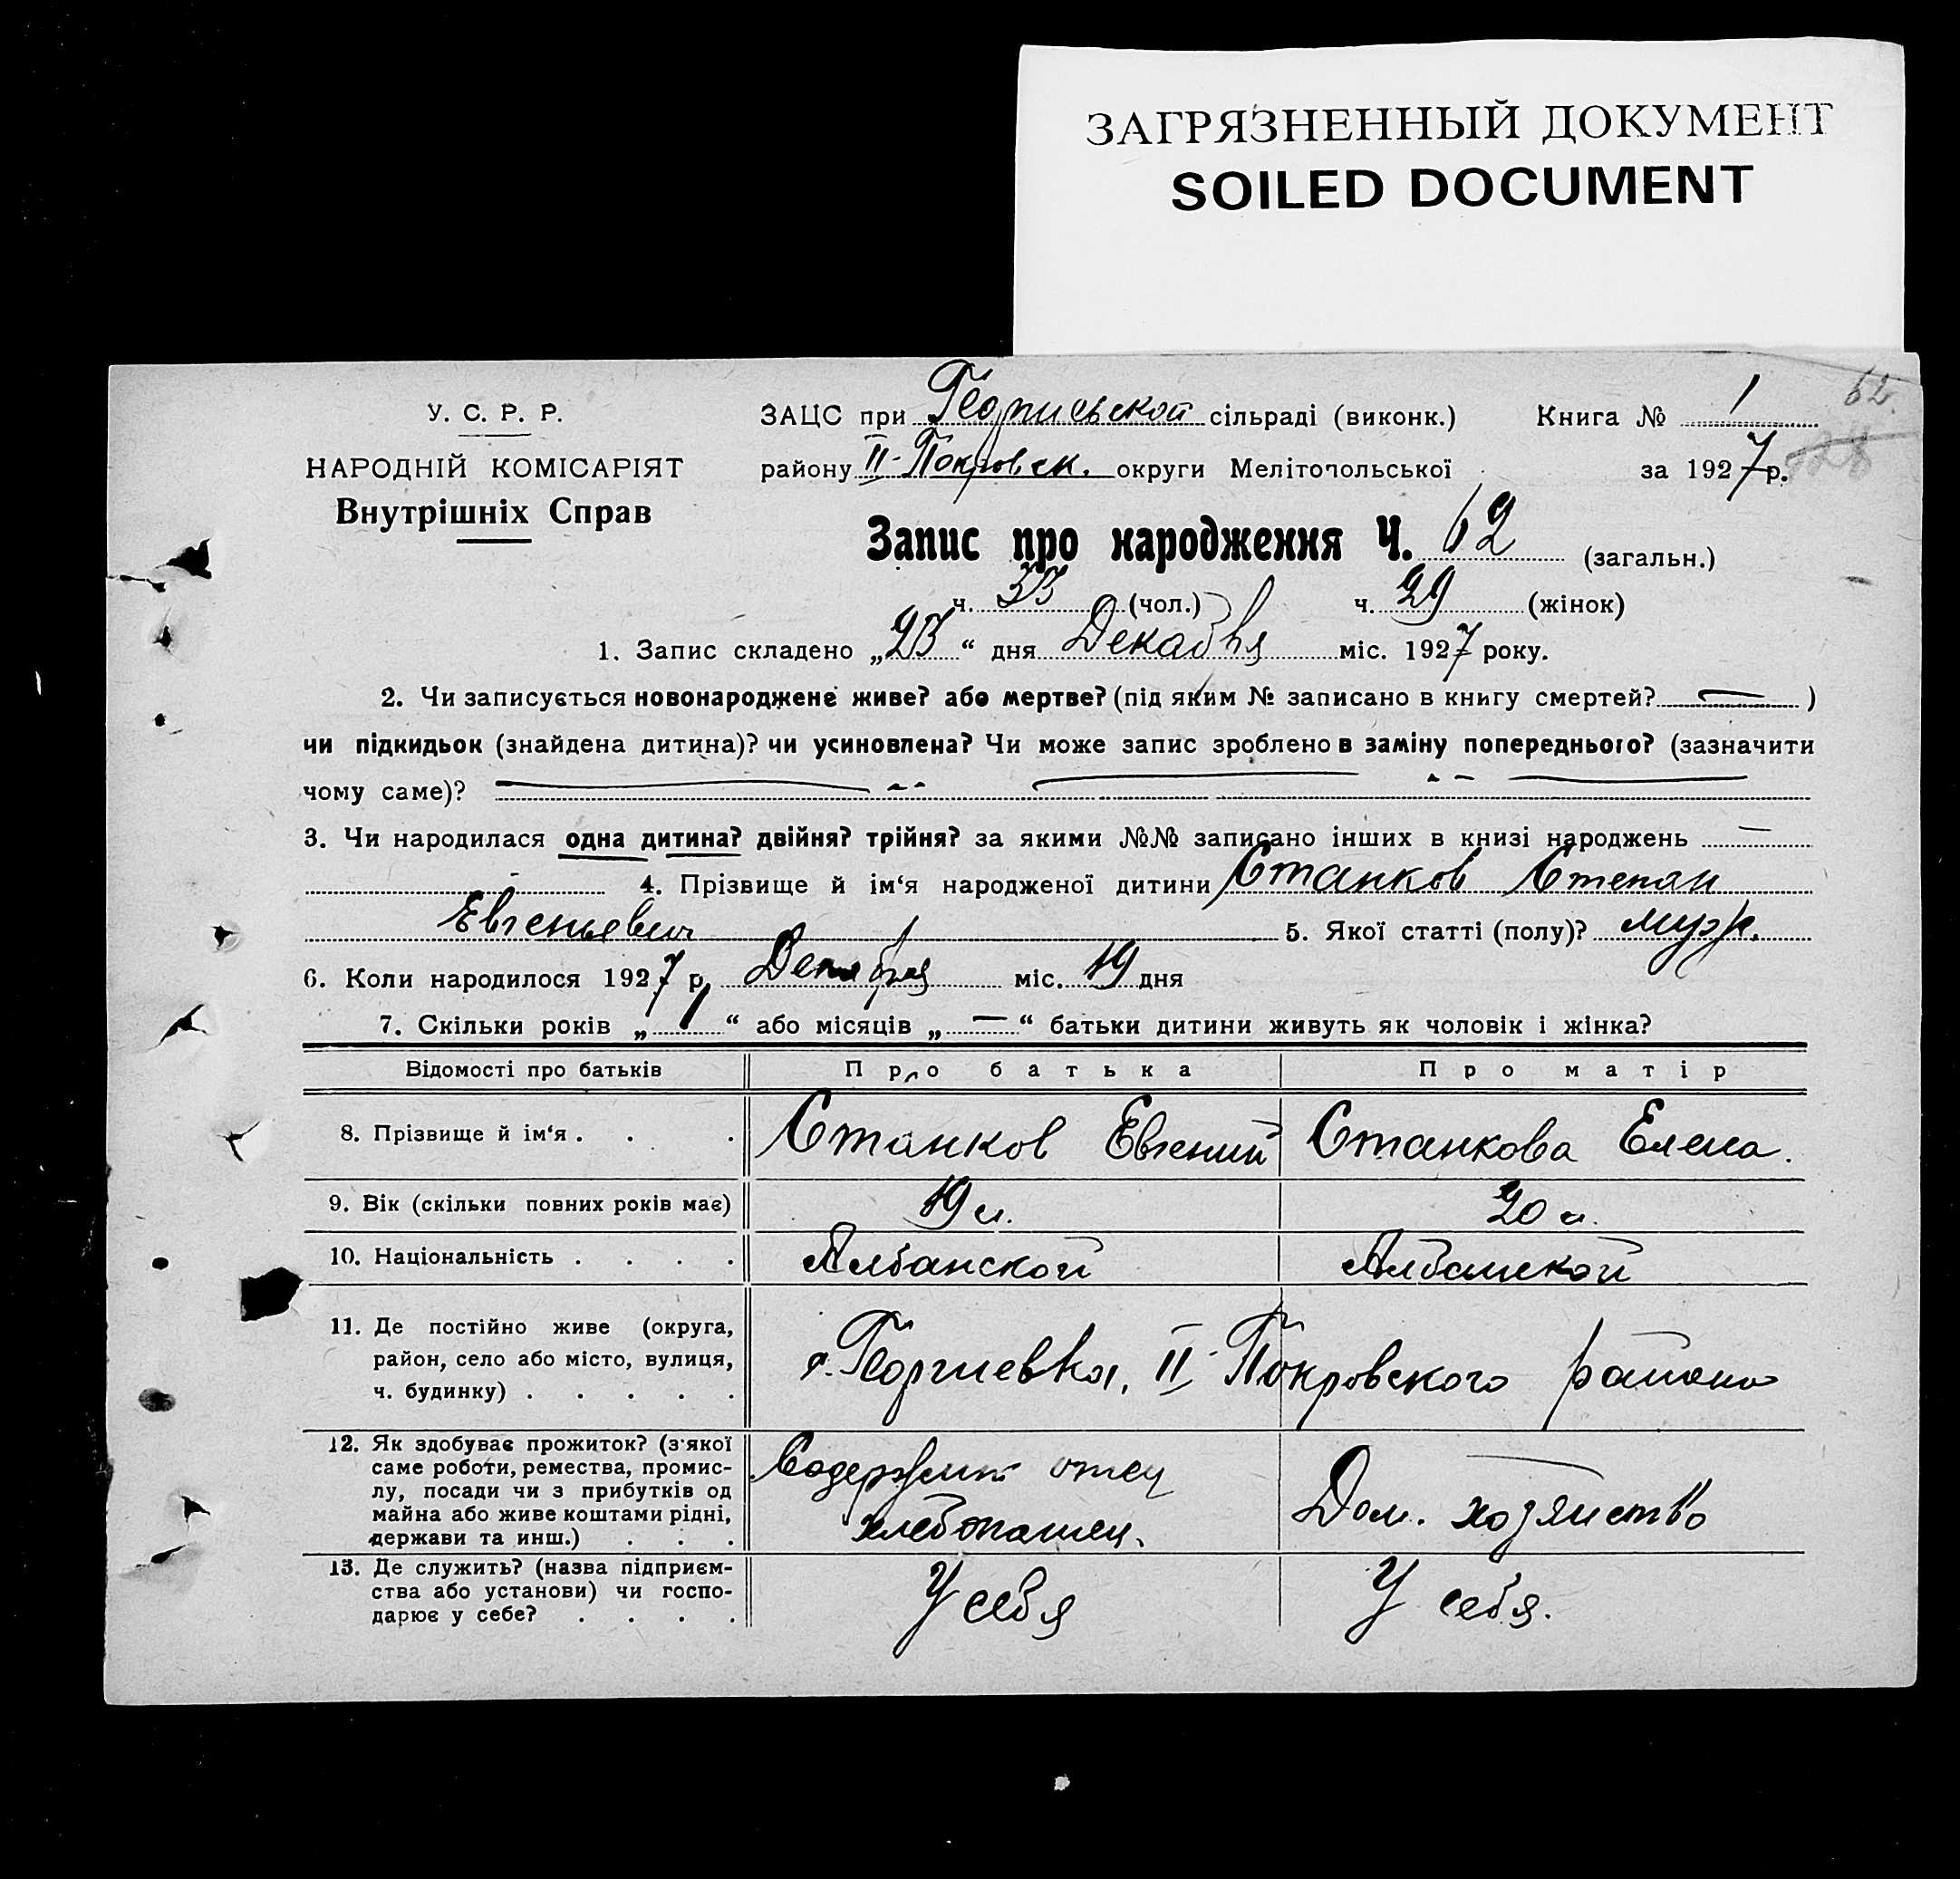 ЗАГРЯЗНЕННЫЙ ДОКУМЕНТ
SOILED DOCUMENT
62.
У. С. Р. Р.
НАРОДНІЙ КОМІСАРІЯТ
Внутрішніх Справ
ЗАЦС при Георгиевской сільраді (виконк.) Книга № 1
району II-Покровск. округи Мелітопольської за 1927 р.
Запис про народження Ч. 62 (загальн.)
ч. 33 (чол.) ч. 29 (жінок)
1. Запис складено „23“ дня Декабря міс. 1927 року.
2. Чи записується новонароджене живе? або мертве? (під яким № записано в книгу смертей? — )
чи підкидьок (знайдена дитина)? чи усиновлена? Чи може запис зроблено в заміну попереднього? (зазначити
чому саме)?
3. Чи народилася одна дитина? двійня? трійня? за якими №№ записано інших в книзі народжень —
4. Прізвище й ім‘я народженої дитини Станков Степан
Евгеньевич 5. Якої статті (полу)? муж.
6. Коли народилося 1927 р. Декабря міс. 19 дня
7. Скільки років „ 1 “ або місяців „ — “ батьки дитини живуть як чоловік і жінка?
Відомості про батьків Про батька Про матір
8. Прізвище й ім‘я . . . Станков Евгений Станкова Елена.
9. Вік (скільки повних років має) 19 л. 20 л.
10. Національність . . . . Албанской Албанской
11. Де постійно живе (округа,
район, село або місто, вулиця,
ч. будинку) . . . . .
с. Георгиевка, II-Покровского района
12. Як здобуває прожиток? (з‘якої
саме роботи, ремества, промис-
лу, посади чи з прибутків од
майна або живе коштами рідні,
держави та инш.) . . .
Содержит отец
хлебопашец.
Дом. хозяйство
13. Де служить? (назва підприєм-
ства або установи) чи госпо-
дарює у себе? . . . .
У себя
У себя.